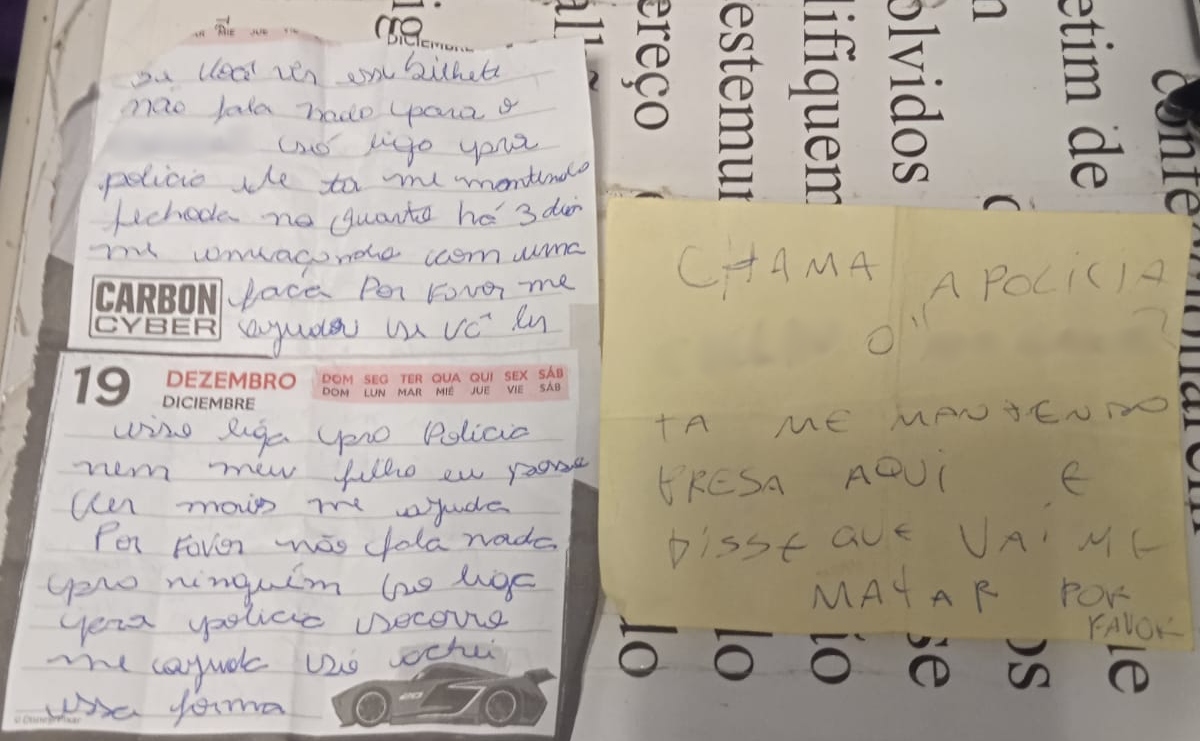 MAR MIE JUE
DICIEMBRE
se você ver esse bilhete
não fala nada para o
só liga pra
policia ele ta me mantendo
fechada no quarto há 3 dias
me ameaçando com uma
faca Por Favor me
ajudar se vc ler
CARBON
CYBER
19 DEZEMBRO
DICIEMBRE
DOM SEG TER QUA QUI SEX SÁB
DOM LUN MAR MIÉ JUE VIE SÁB
isso liga pro Policia
nem meu filho eu posso
ver mais me ajuda
Por Favor não fala nada
pro ninguém só liga
pera policia socorro
me ajuda só achei
essa forma
© Disney/Pixar
CHAMA A POLICIA
O
TA ME MANTENDO
PRESA AQUI E
DISSE QUE VAI ME
MATAR POR
FAVOR
ereço
estemun
lifiquem
olvidos
etim de